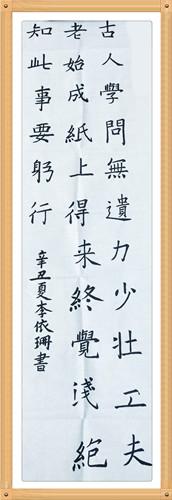 古人學問無遺力少壮工夫
老始成紙上得来終覺淺絕
知此事要躬行
辛丑夏李依珊書